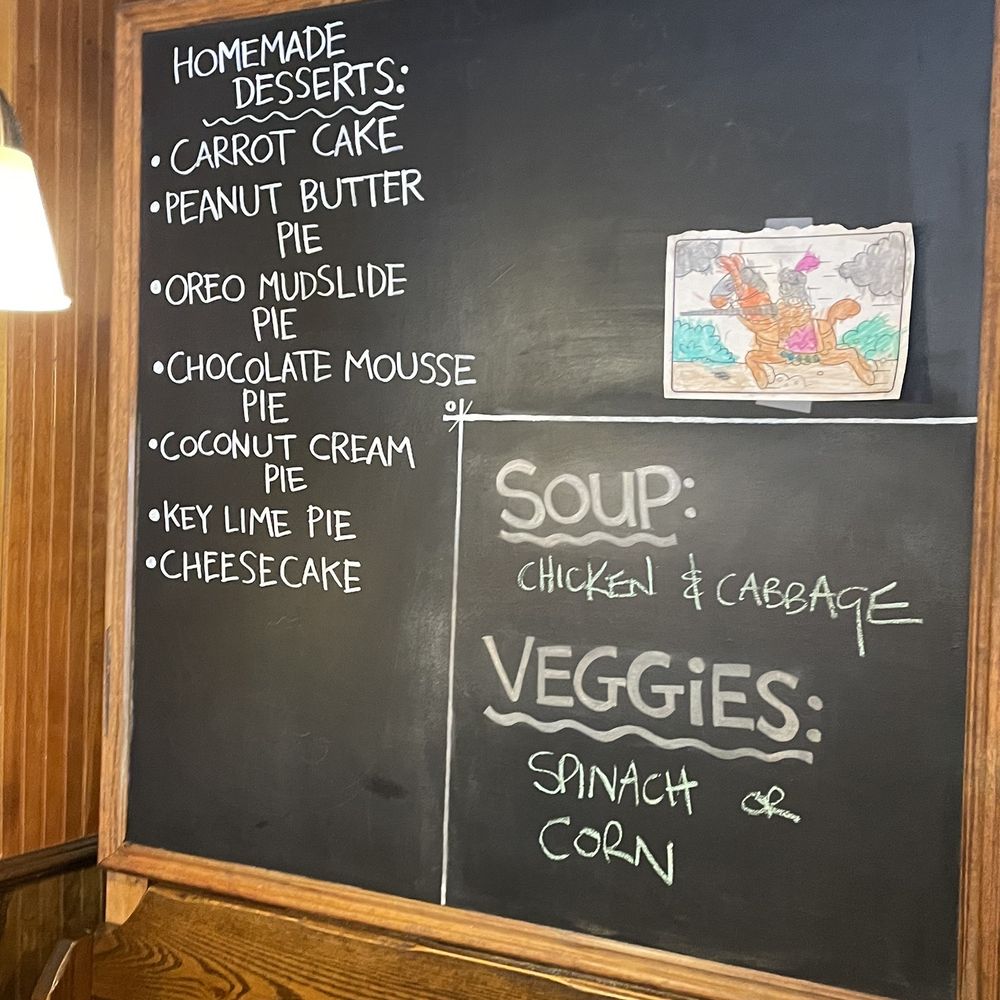 HOMEMADE
DESSERTS:
• CARROT CAKE
• PEANUT BUTTER
PIE
• OREO MUDSLIDE
PIE
• CHOCOLATE MOUSSE
PIE
• COCONUT CREAM
PIE
• KEY LIME PIE
• CHEESECAKE
SOUP:
CHICKEN & CABBAGE
VEGGiES:
SPINACH OR
CORN